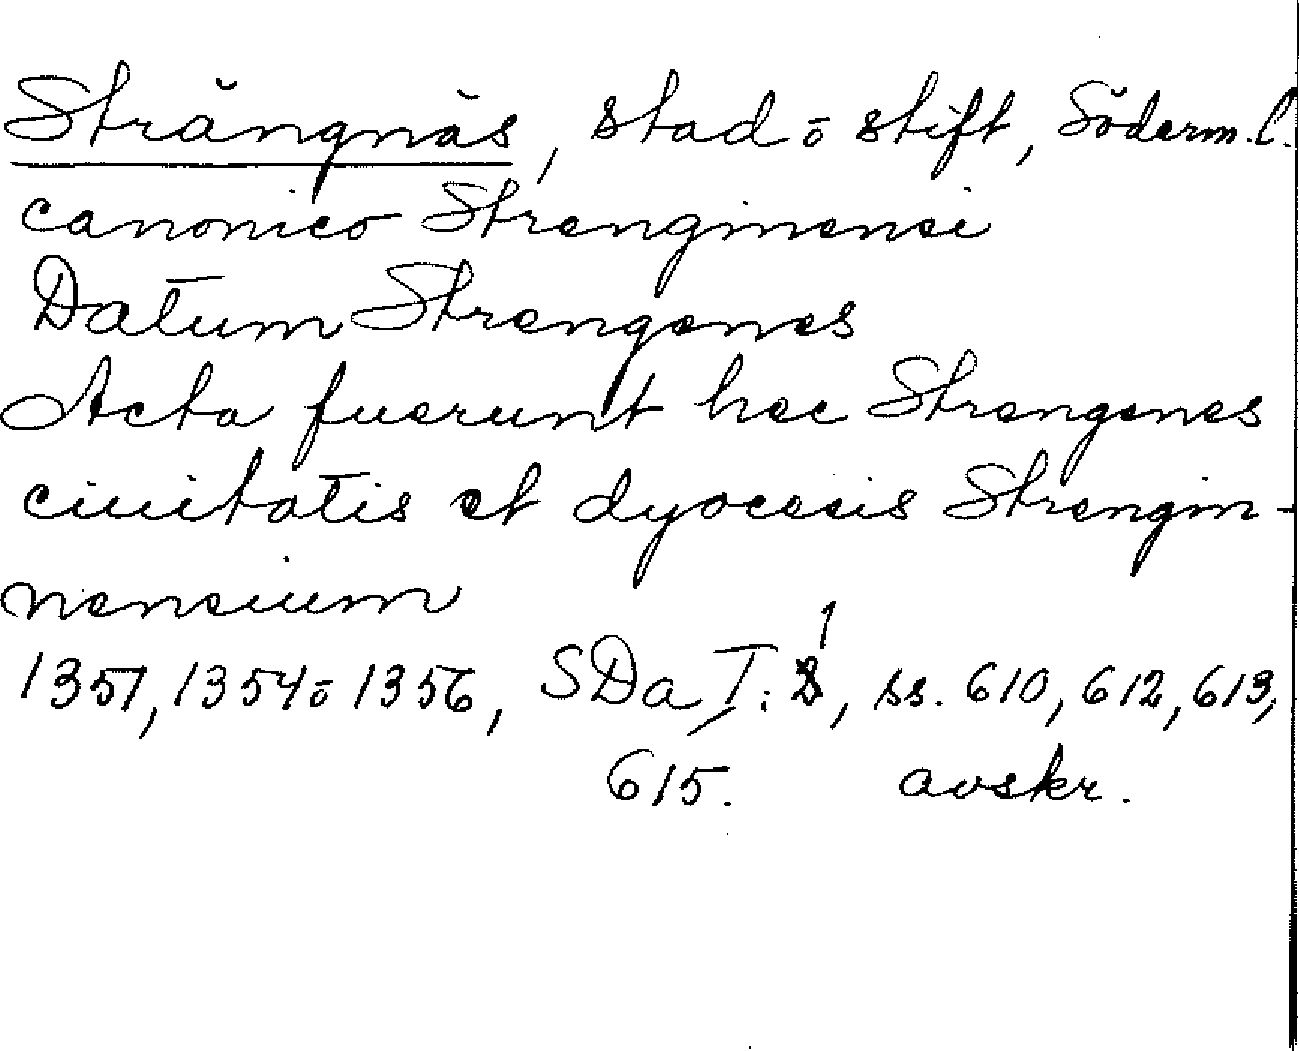 Strängnäs, stad o stift, Söderm. l.
canonico Strenginensi
Datum Strengenes
Acta fuerunt hec Strengenes
ciuitatis et dyocesis Strengin-
nensium
1351, 1354 o 1356, SDa I: 1, ss. 610, 612, 613,
615. avskr.